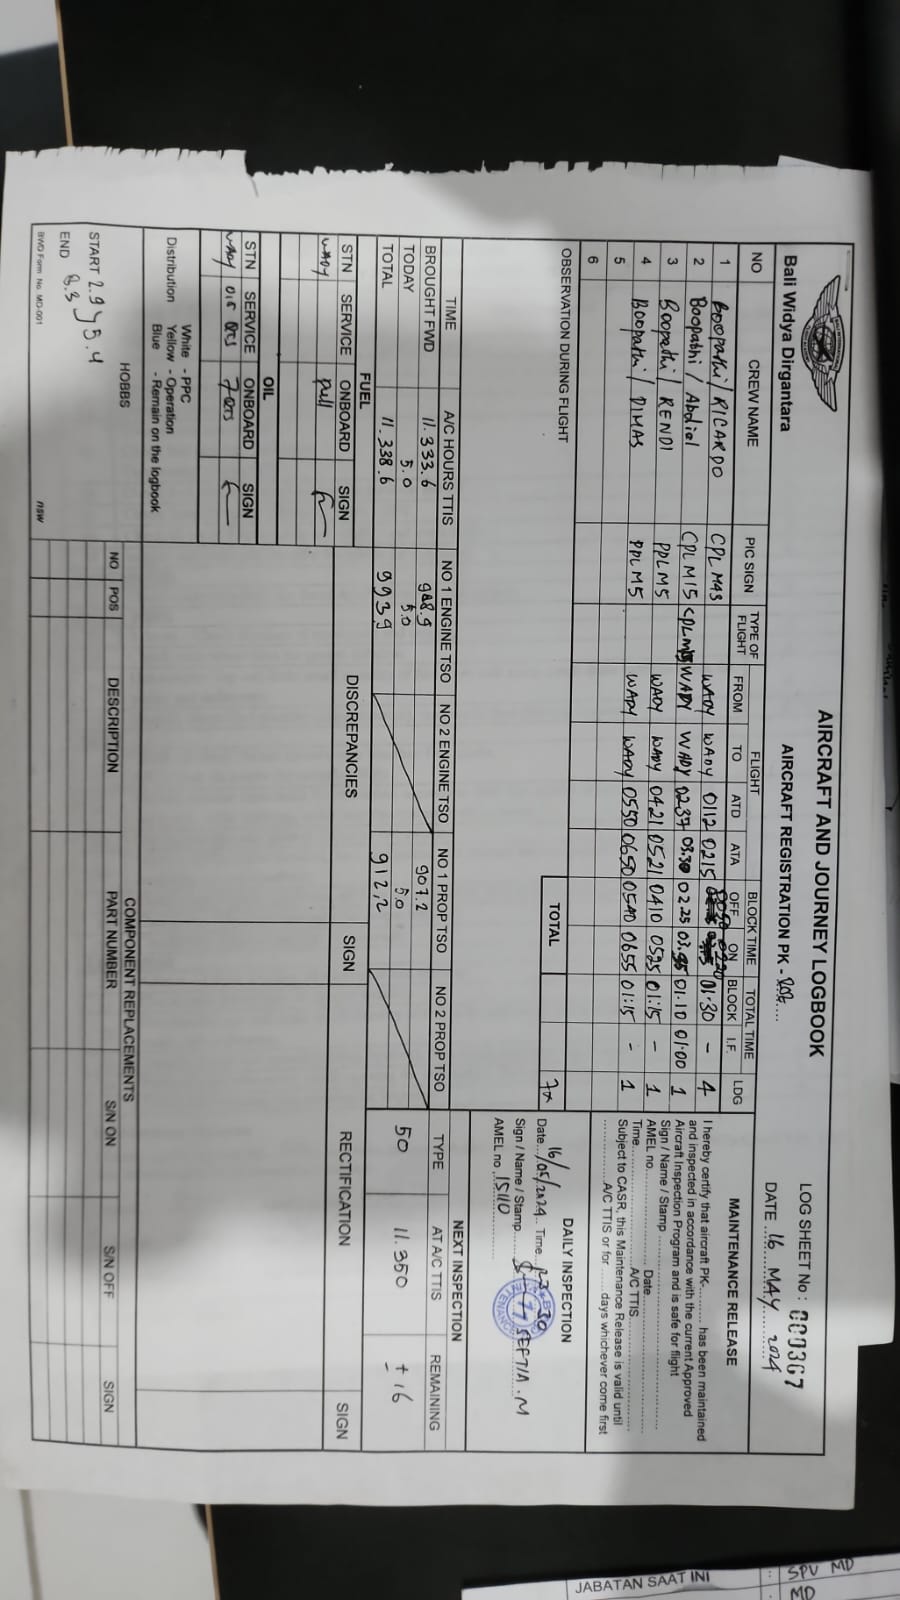 AIRCRAFT AND JOURNEY LOGBOOK
LOG SHEET No: 000367
Bali Widya Dirgantara
AIRCRAFT REGISTRATION PK -
DATE 16 MAY 2024
NO CREW NAME PIC SIGN TYPE OF FLIGHT FLIGHT BLOCK TIME TOTAL TIME LDG
FROM TO ATD ATA OFF ON BLOCK I.F.
1 Boopathi / RICARDO CPL M43 WADY WADY 0112 0215 0220 01:30 - 4
2 Boopathi / Abdiel CPL M15 WADY WADY 0237 03.30 02.25 01:10 01:00 1
3 Boopathi / RENDI PPL M5 WADY WADY 0421 0521 0410 0525 01:15 - 1
4 Boopathi / DIMAS PPL M5 WADY WADY 0550 0650 0540 0655 01:15 - 1
5
6
TOTAL 7x
OBSERVATION DURING FLIGHT
MAINTENANCE RELEASE
I hereby certify that aircraft PK-........... has been maintained
and inspected in accordance with the current Approved
Aircraft Inspection Program and is safe for flight
Sign / Name / Stamp
AMEL no. Date
Time A/C TTIS
Subject to CASR, this Maintenance Release is valid until
A/C TTIS or for ......days whichever come first
DAILY INSPECTION
Date 16/05/2024 Time
Sign / Name / Stamp SEPTIA . M
AMEL no 15110
TIME A/C HOURS TTIS NO 1 ENGINE TSO NO 2 ENGINE TSO NO 1 PROP TSO NO 2 PROP TSO
BROUGHT FWD 11.333.6 988.9 907.2
TODAY 5.0 5.0 5.0
TOTAL 11.338.6 993.9 912.2
NEXT INSPECTION
TYPE AT A/C TTIS REMAINING
50 11.350 ± 16
FUEL
STN SERVICE ONBOARD SIGN
WADY full
OIL
STN SERVICE ONBOARD SIGN
WADY 7 QTS
DISCREPANCIES SIGN RECTIFICATION SIGN
Distribution White - PPC
Yellow - Operation
Blue - Remain on the logbook
HOBBS
START 2.9
END 8.3
5.4
COMPONENT REPLACEMENTS
NO POS DESCRIPTION PART NUMBER S/N ON S/N OFF SIGN
BWD Form No. MD-001 nsw
JABATAN SAAT INI : SPV MD
MD